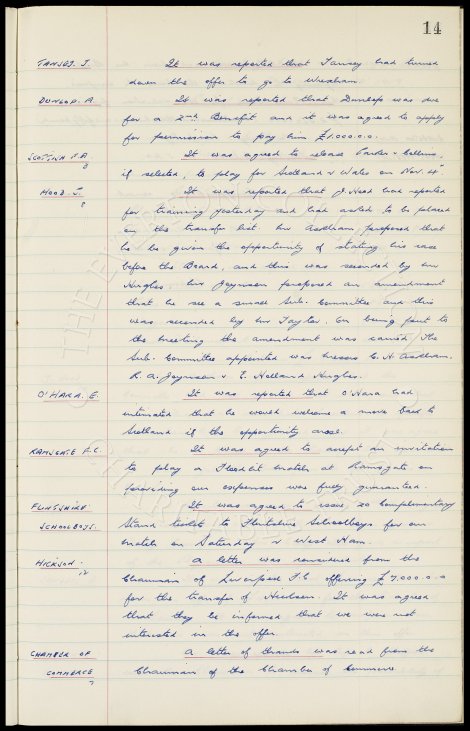 14
TANSEY. J. It was reported that Tansey had turned
down the offer to go to Wrexham.
DUNLOP. A. It was reported that Dunlop was due
for a 2nd Benefit and it was agreed to apply
for permission to pay him £1,000.0.0.
SCOTTISH F.A. It was agreed to release Parker & Collins,
if selected, to play for Scotland v Wales on Nov. 4th
HOOD. J. It was reported that J. Hood had reported
for training yesterday and had asked to be placed
on the transfer list. Mr Askham proposed that
he be given the opportunity of stating his case
before the Board, and this was seconded by Mr
Hughes. Mr Joynson proposed an amendment
that he see a small Sub. Committee and this
was seconded by Mr Taylor. On being put to
the meeting the amendment was carried. The
Sub. Committee appointed was Messrs C. H. Askham.
R. A. Joynson & E. Holland Hughes.
O'HARA. E. It was reported that O'Hara had
intimated that he would welcome a move back to
Scotland if the opportunity arose.
RAMSGATE F.C. It was agreed to accept an invitation
to play a Floodlit match at Ramsgate on
providing our expenses was fully guaranteed.
FLINTSHIRE It was agreed to issue 20 Complimentary
SCHOOLBOYS. Stand tickets to Flintshire Schoolboys for our
match on Saturday v West Ham.
HICKSON. A letter was considered from the
Chairman of Liverpool F.C offering £7,000.0.0
for the transfer of Hickson. It was agreed
that they be informed that we were not
interested in the offer.
CHAMBER OF A letter of thanks was read from the
COMMERCE Chairman of the Chamber of Commerce